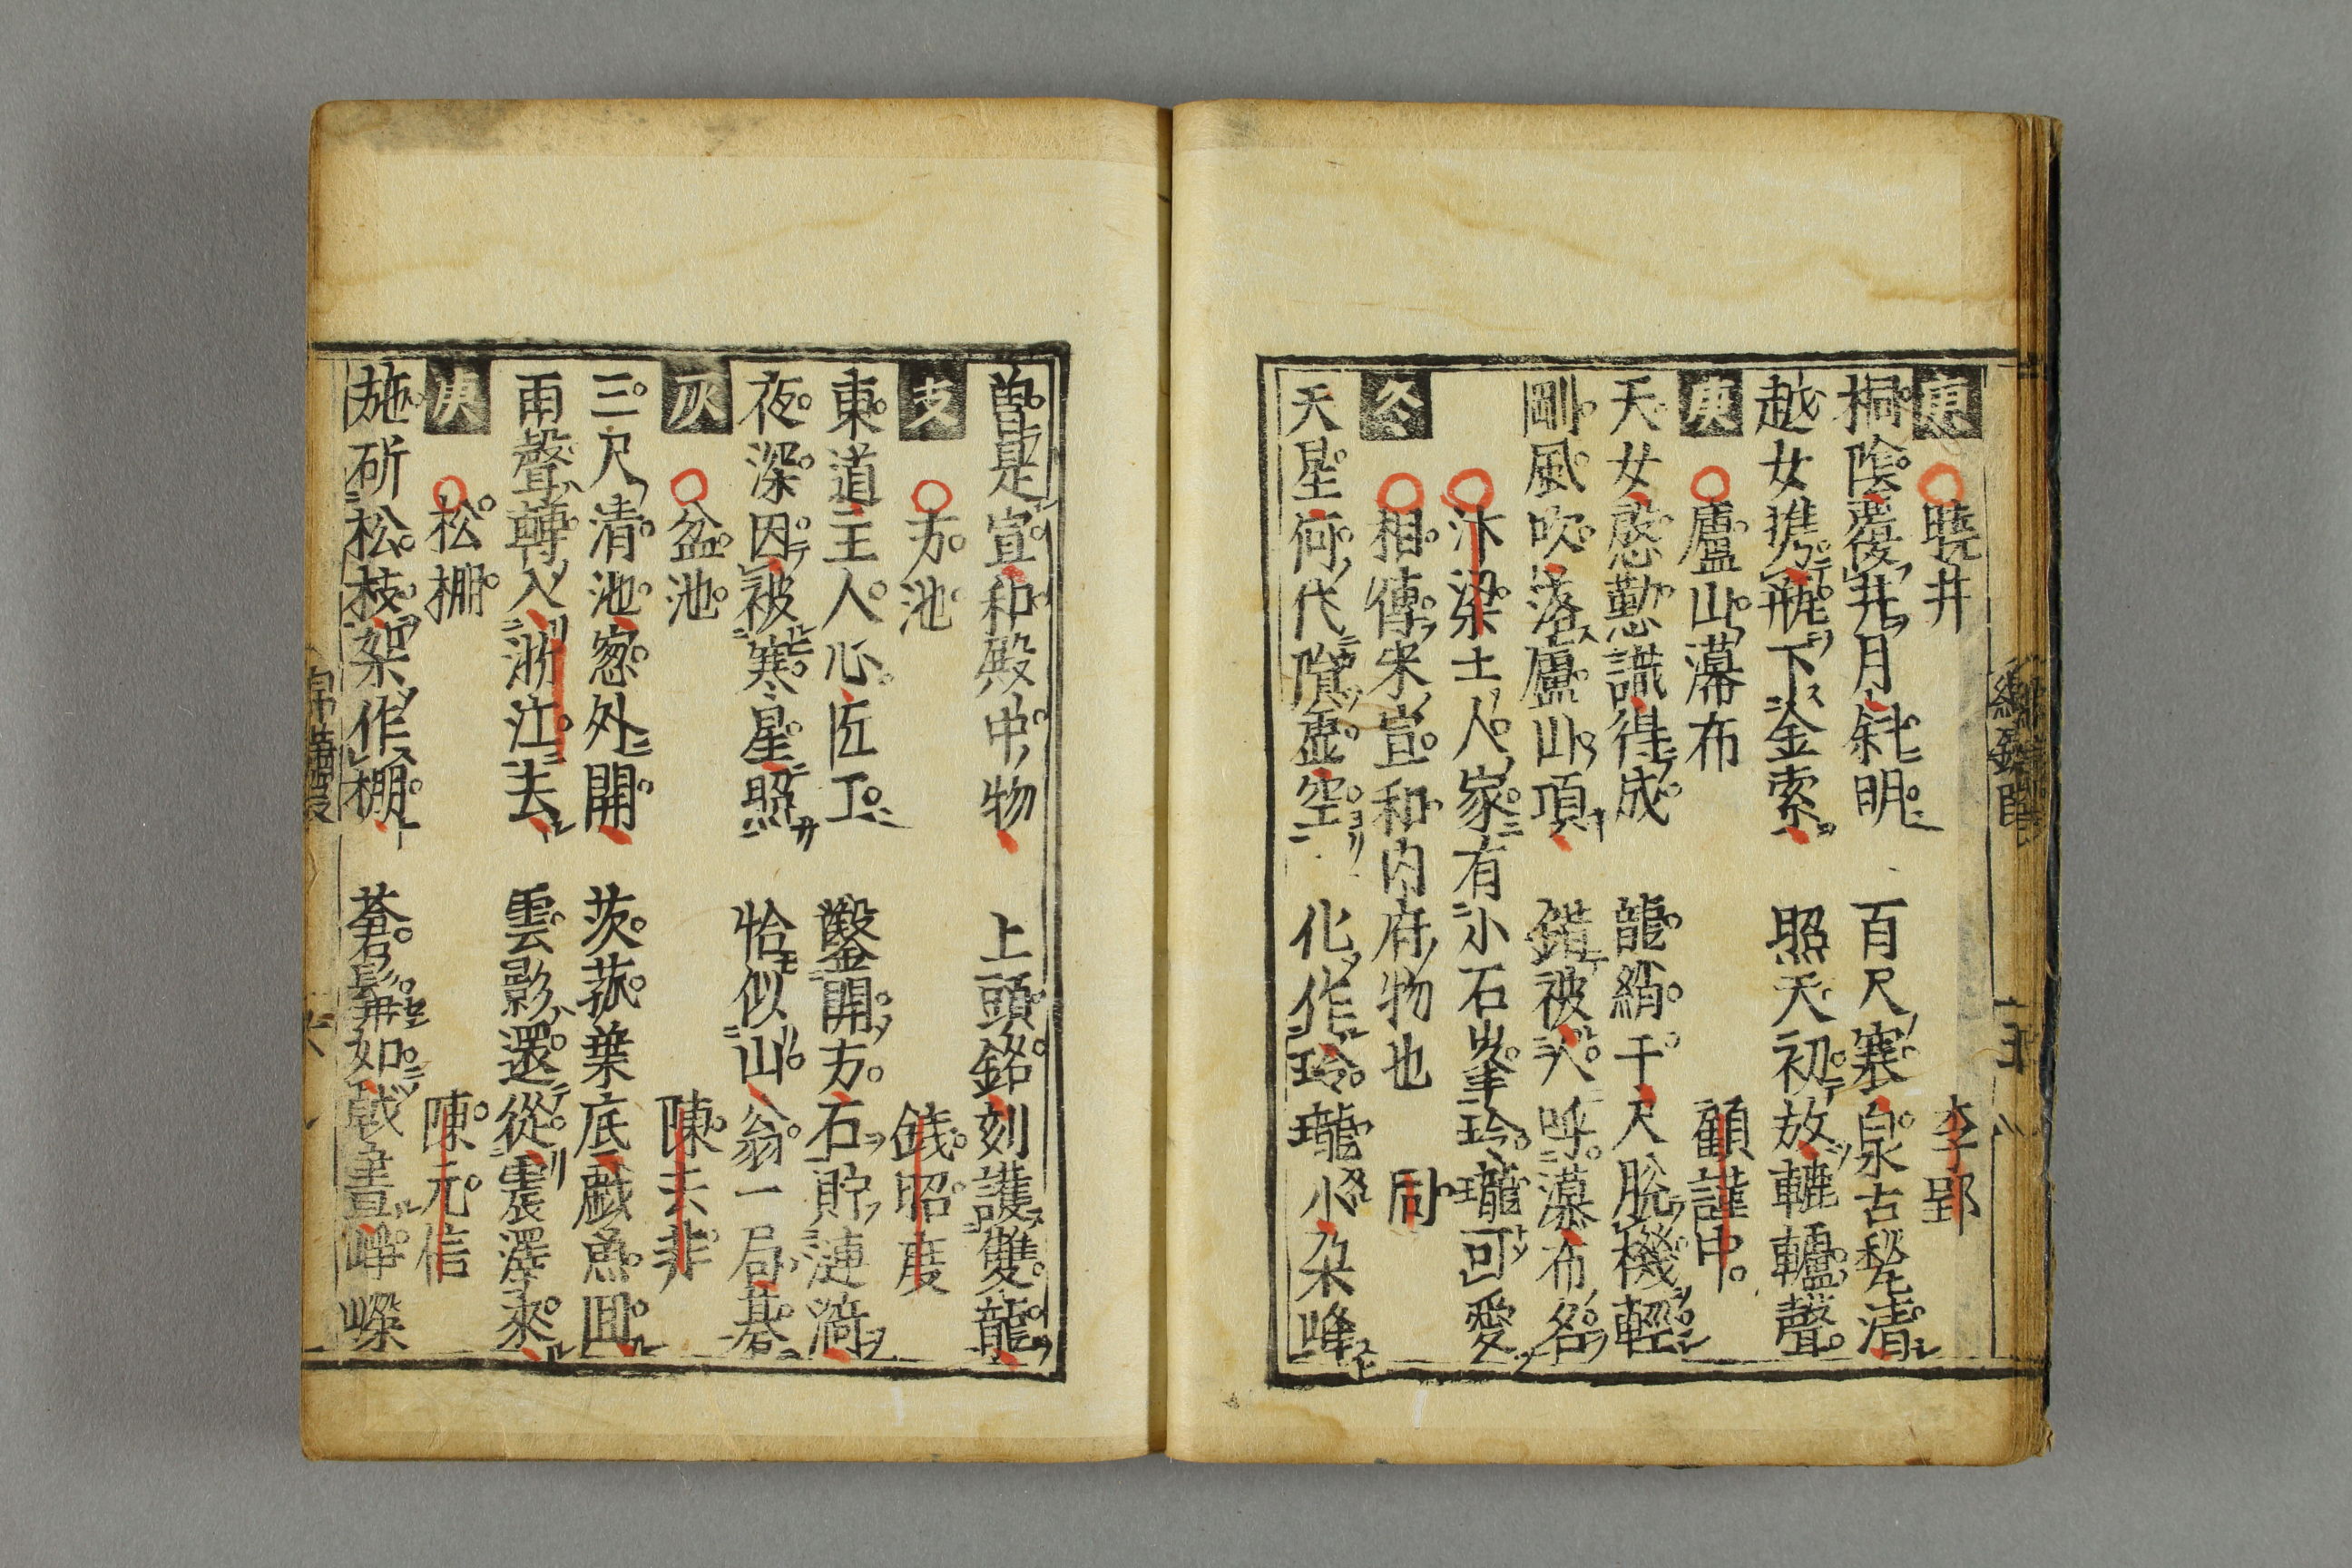 庚 曉井 李郢
桐陰覆井月斜明 百尺寒泉古甃清
越女携瓶下金索 照天初放轆轤聲
庚 廬山瀑布 顧謹中
天女慇懃識得成 龍綃千尺脫機輕
剛風吹落廬山項 錯被人呼瀑布名
汴梁士人家有小石峯玲瓏可愛
冬 相傳宋宣和内府物也 同
天星何代隕虛空 化作玲瓏小朶峰
曽是宣和殿中物 上頭銘刻護雙龍
支 方池 錢昭度
東道主人心匠工 鑿開方石貯漣漪
夜深因被寒星照 恰似山翁一局碁
灰 盆池 陳去非
三尺清池窓外開 茨菰葉底戯魚回
雨聲轉入浙江去 雲影還從裏澤來
庚 松棚 陳元信
旋斫松枝架作棚 蒼髯如戟晝崢嶸